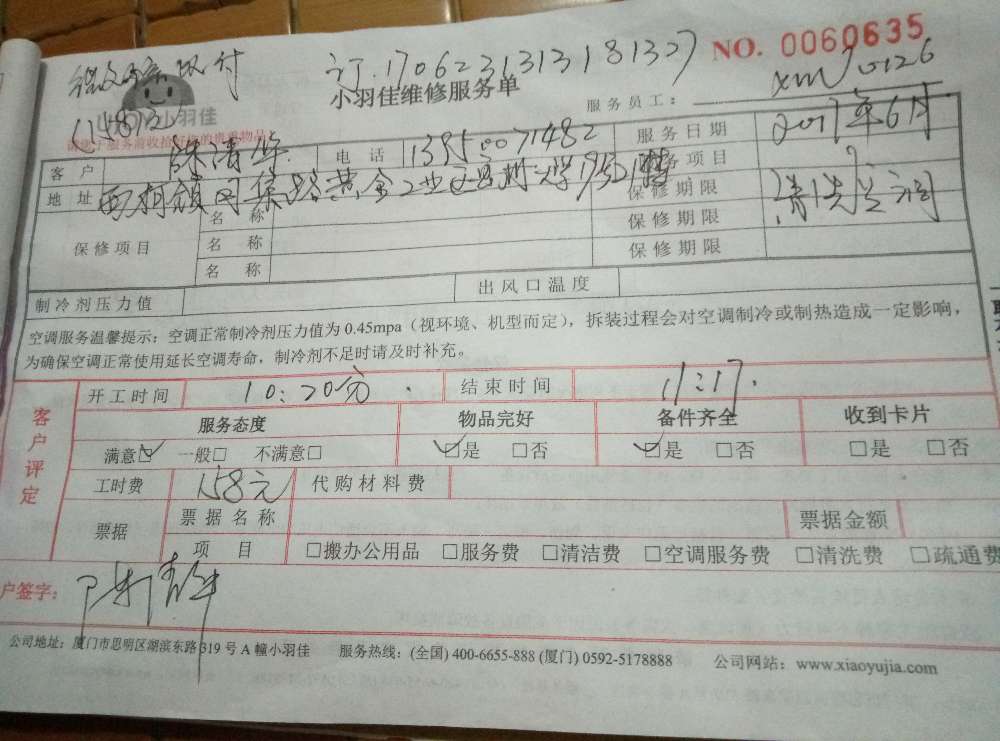 NO. 0060635
订.1706231313181327
小羽佳维修服务单
服务员工: xm10126
小羽佳
请您于服务前收拾好您的贵重物品
客户 陈清华 电话 13950071482 服务日期 2017年6月
地址 西柯镇 服务项目 清洗
保修项目 名称 保修期限
名称 保修期限
名称 保修期限
制冷剂压力值 出风口温度
空调服务温馨提示:空调正常制冷剂压力值为0.45mpa(视环境、机型而定),拆装过程会对空调制冷或制热造成一定影响,
为确保空调正常使用延长空调寿命,制冷剂不足时请及时补充。
客户评定
开工时间 10:20分. 结束时间 11:17.
服务态度 物品完好 备件齐全 收到卡片
满意☑ 一般□ 不满意□ ☑是 □否 ☑是 □否 □是 □否
工时费 158元 代购材料费
票据 票据名称 票据金额
项目 □搬办公用品 □服务费 □清洁费 □空调服务费 □清洗费 □疏通费
户签字: 陈清华
公司地址:厦门市思明区湖滨东路319号A幢小羽佳 服务热线:(全国) 400-6655-888 (厦门) 0592-5178888 公司网站:www.xiaoyujia.com